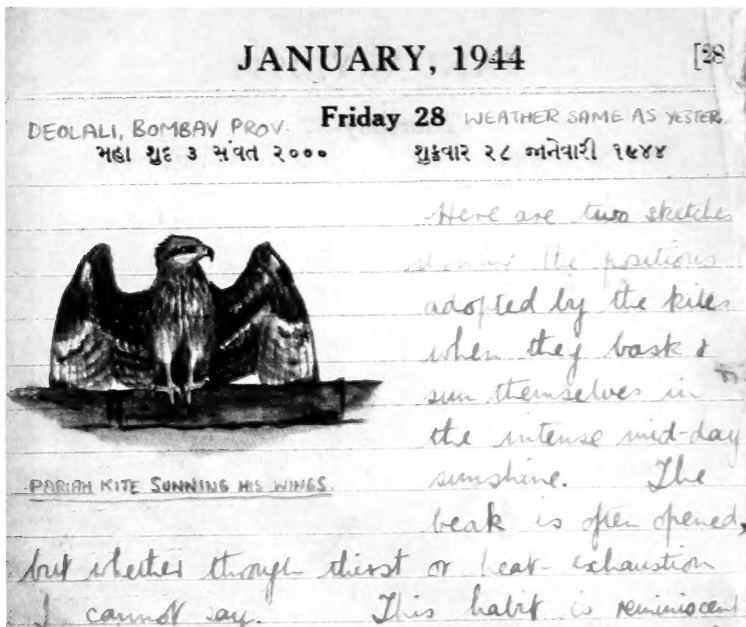 JANUARY, 1944 [28
DEOLALI, BOMBAY PROV. Friday 28 WEATHER SAME AS YESTER.
મહા શુદ ૩ સંવત ૨૦૦૦ શુક્રવાર ૨૮ જાનેવારી ૧૯૪૪
Here are two sketches
showing the positions
adopted by the kites
when they bask &
sun themselves in
the intense mid-day
sunshine. The
PARIAH KITE SUNNING HIS WINGS.
beak is often opened,
but whether through thirst or heat-exhaustion
I cannot say. This habit is reminiscent